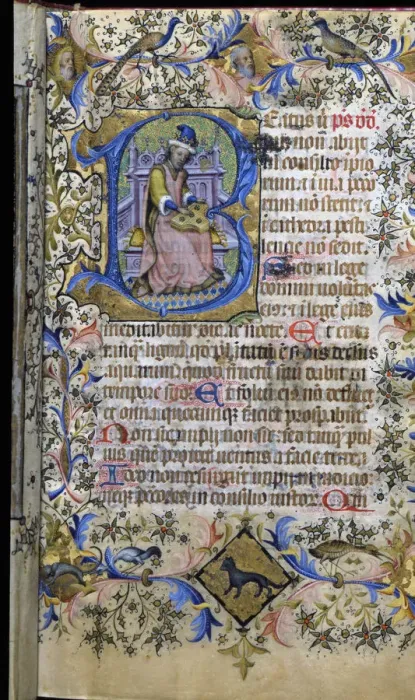 B Eatus uir ps dd.
qui non abijt
in consilio ipio
rum. et i uia pecca
torum nō stetit: et
cathedra pesti
lencie nō sedit.
Sed in lege
domini uolūtas
eius: et i lege eius
meditabitur die ac nocte. Et erit
tanq̄ lignū qd̄ plātatū ē decursus
aquarum: quod fructum suū dabit in
tempore suo. Et foliū eius nō defluet
et omīa quecumq̄ faciet prosperabūt.
Non sic impij non sic: sed tamq̄ pul
uis quē proicit uentus a facie terre.
Ideo non resurgūt impij in iudicio:
neq̄ peccores in consilio iustor. Qm̄